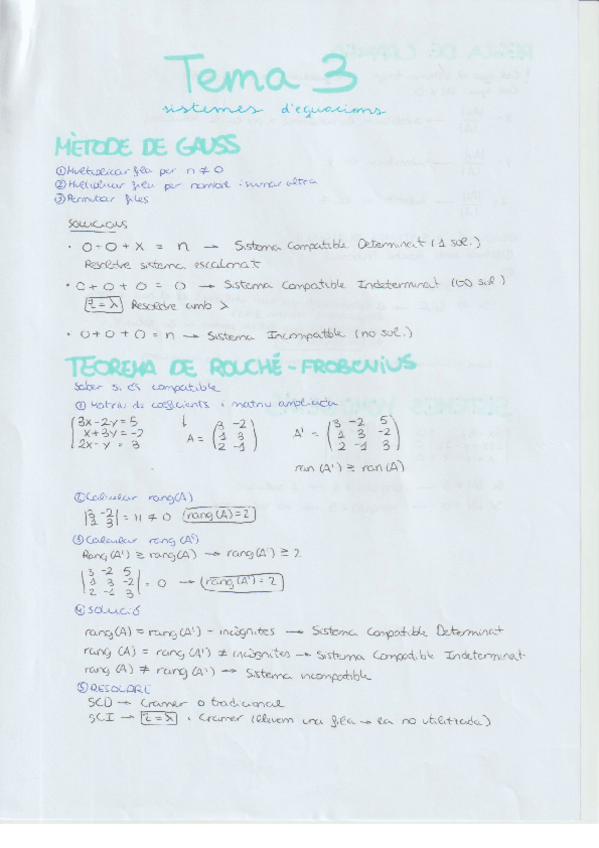 Tema 3
sistemes d'equacions
MÈTODE DE GAUSS
① Multiplicar fila per n ≠ 0
② Multiplicar fila per nombre i sumar altra
③ Permutar files
SOLUCIONS
· 0+0+x = n → Sistema Compatible Determinat (1 sol.)
Resoldre sistema escalonat
· 0+0+0 = 0 → Sistema Compatible Indeterminat (∞ sol)
z=λ Resoldre amb λ
· 0+0+0 = n → Sistema Incompatible (no sol.)
TEOREMA DE ROUCHÉ-FROBENIUS
Saber si és compatible
① Matriu de coeficients i matriu ampliada
3x-2y=5
x+3y=-2
2x-y=3
↓
A = (3 -2
1 3
2 -1)
A' = (3 -2 5
1 3 -2
2 -1 3)
ran(A') ≥ ran(A)
② Calcular rang(A)
|3 -2
1 3| = 11 ≠ 0 rang(A)=2
③ Calcular rang(A')
Rang(A') ≥ rang(A) → rang(A') ≥ 2
|3 -2 5
1 3 -2
2 -1 3| = 0 → rang(A')=2
④ SOLUCIÓ
rang(A) = rang(A') = incògnites → Sistema Compatible Determinat
rang(A) = rang(A') ≠ incògnites → Sistema Compatible Indeterminat
rang(A) ≠ rang(A') → Sistema incompatible
⑤ RESOLDRE
SCD → Cramer o tradicional
SCI → z=λ i Cramer (llevem una fila → la no utilitzada)